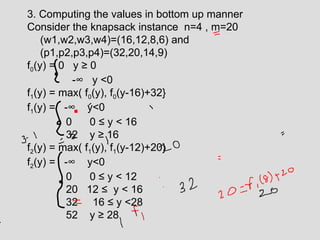 3. Computing the values in bottom up manner
Consider the knapsack instance n=4 , m=20
(w1,w2,w3,w4)=(16,12,8,6) and
(p1,p2,p3,p4)=(32,20,14,9)
f0(y) = 0 y ≥ 0
-∞ y <0
f1(y) = max( f0(y), f0(y-16)+32}
f1(y) = -∞ y<0
0 0 ≤ y < 16
32 y ≥ 16
f2(y) = max( f1(y), f1(y-12)+20}
f2(y) = -∞ y<0
0 0 ≤ y < 12
20 12 ≤ y < 16
32 16 ≤ y <28
52 y ≥ 28
32
20 = f1(8)+20
20
f1